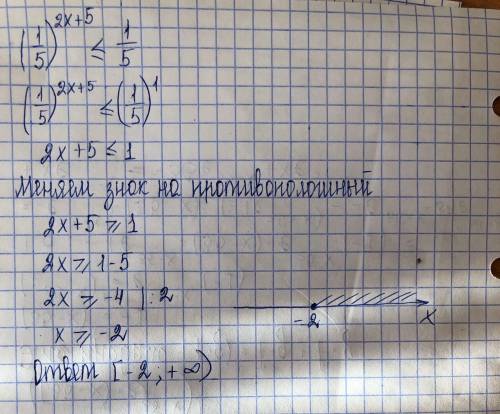 (1/5)^(2x+5) ≤ 1/5
(1/5)^(2x+5) ≤ (1/5)^1
2x+5 ≤ 1
Меняем знак на противополошный
2x+5 ⩾ 1
2x ⩾ 1-5
2x ⩾ -4 |:2
x ⩾ -2
-2 x
Ответ [-2; +∞)